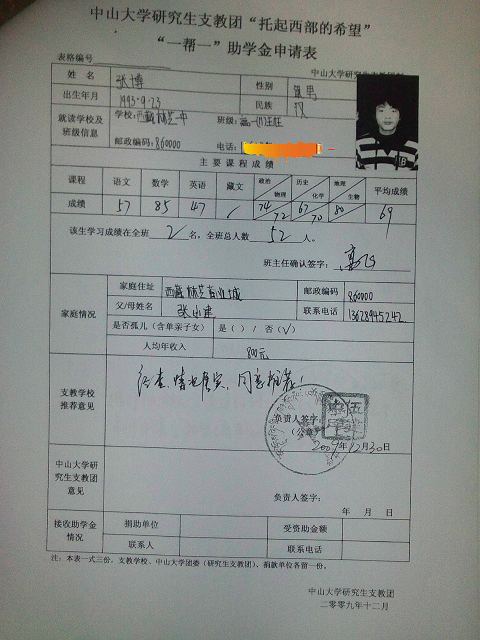 中山大学研究生支教团“托起西部的希望”
“一帮一”助学金申请表
表格编号 中山大学研究生支教团
姓 名 张博 性别 男
出生年月 1993.9.23 民族 汉
就读学校及班级信息 学校: 西藏林芝一中 班级: 高一
邮政编码: 860000 电话:
主 要 课 程 成 绩
课程 语文 数学 英语 藏文 政治 物理 历史 化学 地理 生物 平均成绩
成绩 57 85 47 / 74 72 67 70 80 69
该生学习成绩在全班 2 名,全班总人数 52 人。
班主任确认签字:
家庭情况 家庭住址 西藏林芝 城 邮政编码 860000
父/母姓名 张 建 联系电话 13628945242
是否孤儿(含单亲子女) 是( )/ 否(√)
人均年收入 800元
支教学校推荐意见 经查,情况属实,同意推荐!
负责人签字:
(公章)
2009年12月30日
中山大学研究生支教团意见
负责人签字:
年 月 日
接收助学金情况 捐助单位 受资助金额
联系人 联系电话
注:本表一式三份,支教学校、中山大学团委(研究生支教团)、捐款单位各留一份。
中山大学研究生支教团
二零零九年十二月